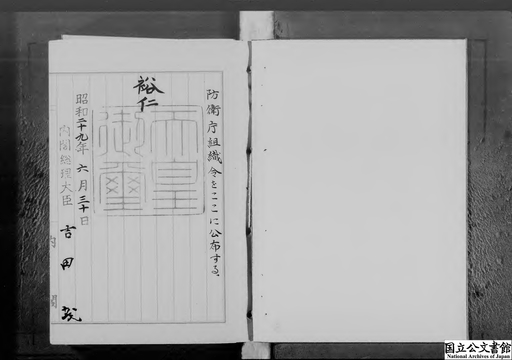 防衛庁組織令をここに公布する。
裕仁
天皇御璽
昭和二十九年六月三十日
内閣総理大臣
吉田茂
内閣
国立公文書館
National Archives of Japan